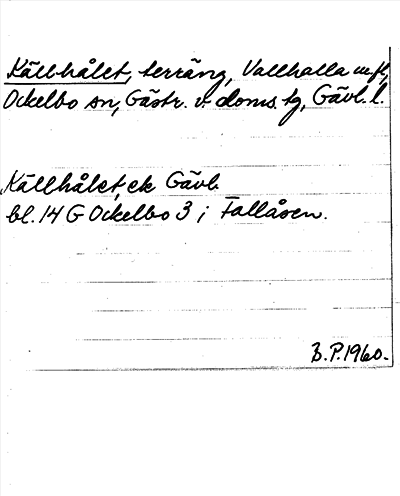 Källhålet, terräng, Vallhalla m.fl.,
Ockelbo sn, Gästr. v. doms. tg, Gävl. l.
Källhålet, ek Gävb
bl. 14 G Ockelbo 3 i Fallåsen.
B.P. 1960.